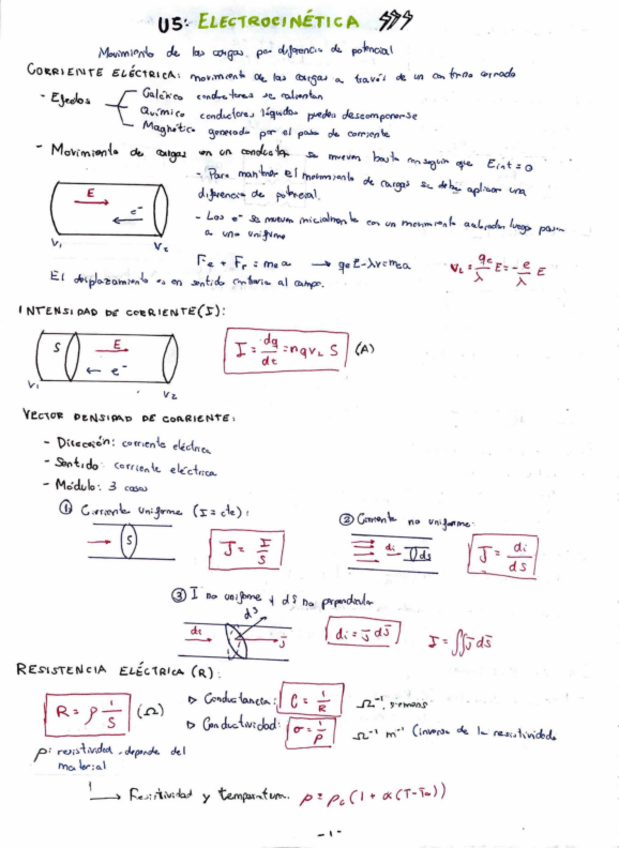 U5: ELECTROCINÉTICA
Movimiento de las cargas por diferencia de potencial
CORRIENTE ELÉCTRICA: movimiento de las cargas a través de un contorno cerrado
- Efectos
Calórico conductores se calientan
Químico conductores líquidos pueden descomponerse
Magnético generado por el paso de corriente
- Movimiento de cargas en un conductor se mueven hasta conseguir que Eint = 0
- Para mantener el movimiento de cargas se debe aplicar una
diferencia de potencial.
- Los e⁻ se mueven inicialmente con un movimiento acelerado luego pasan
a uno uniforme
E
e⁻
V₁ V₂
Fe + Fr = mea → qeE - λv = mea
VL = qe/λ E = - e/λ E
El desplazamiento es en sentido contrario al campo.
INTENSIDAD DE CORRIENTE (I):
S E
e⁻
V₁ V₂
I = dq/dt = nqvL S (A)
VECTOR DENSIDAD DE CORRIENTE:
- Dirección: corriente eléctrica
- Sentido: corriente eléctrica
- Módulo: 3 casos
① Corriente uniforme (I = cte):
S
J = I/S
② Corriente no uniforme:
di ds
J = di/ds
③ I no uniforme y dS no perpendicular
di dS J
di = J dS
I = ∬ J dS
RESISTENCIA ELÉCTRICA (R):
R = ρ 1/S (Ω)
▷ Conductancia: C = 1/R Ω⁻¹, siemens
▷ Conductividad: σ = 1/ρ Ω⁻¹ m⁻¹ (inverso de la resistividad)
ρ: resistividad, depende del
material
Resistividad y temperatura. ρ = ρ₀(1 + α(T-T₀))
-1-